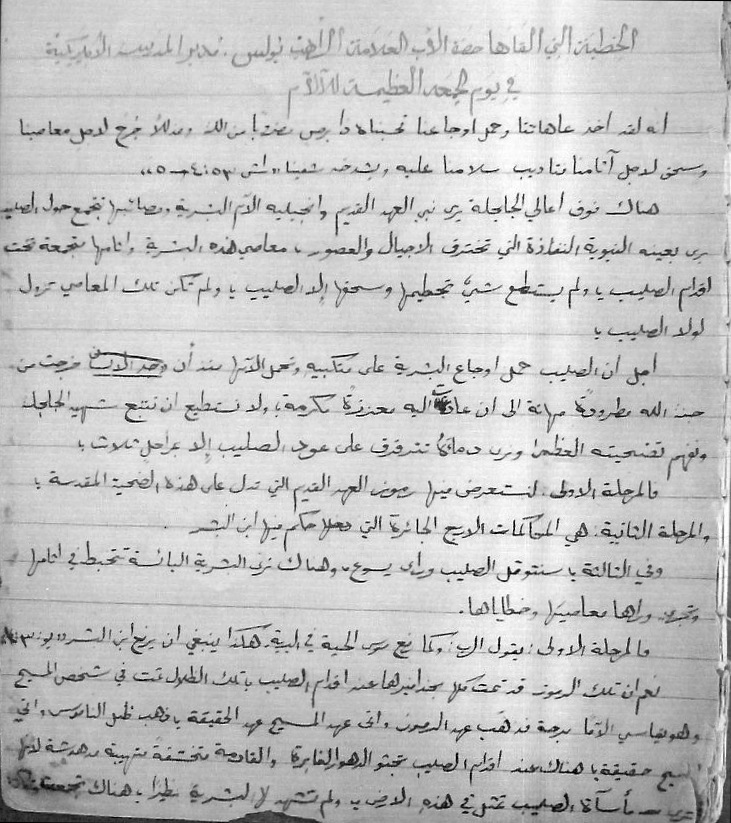 الخطبة التي القاها حضرة الأب العلامة الراهب بولس. مدير المدرسة الأمريكية
في يوم الجمعة العظيمة للآلام
انه لقد اخذ عاهاتنا وحمل اوجاعنا فحسبناه ذا برص مضروبا من الله ومذللا جُرح لاجل معاصينا
وسحق لاجل آثامنا فتأديب سلامنا عليه وبشدخه شفينا " اش ٥٣: ٤-٥ "
هناك فوق أعالي الجلجلة يرى نبي العهد القديم وانجيليه آلام البشرية ومصائبها تتجمع حول الصليب
يرى بعينه النبوية النفاذة التي تخترق الاجيال والعصور، معاصي هذه البشرية وآثامها متجمعة تحت
اقدام الصليب، ولم يستطع شيءٌ تحطيمها وسحقها إلا الصليب، ولم تكن تلك المعاصي تزول
لولا الصليب،
اجل ان الصليب حمل اوجاع البشرية على منكبيه وتحمل آلامها منذ أن خرجت من
جنة الله مطرودةً مهانة الى ان عادت اليه معززةً مكرمة، ولا نستطيع ان نتتبع شهيد الجلجلة
ونفهم تضحيته العظمى ونرى دمائهُ تترقرق على عود الصليب إلا بمراحل ثلاث،
فالمرحلة الاولى. نستعرض فيها رموز العهد القديم التي تدل على هذه الضحية المقدسة،
والمرحلة الثانية. هي المحاكمات الاربع الجائرة التي حكم فيها ابن البشر.
وفي الثالثة، سنتوقل الصليب وراء يسوع، وهناك نرى البشرية البائسة تتخبط في آثامها
وتجر وراها معاصيها وخطاياها.
فالمرحلة الاولى: يقول الرب: وكما رفع موسى الحية في البرية. هكذا ينبغي ان يرفع ابن البشر " يو: ٣
نعم ان تلك الرموز قد تمت كلها بحذافيرها عند اقدام الصليب، تلك الظلال تمت في شخص المسيح
وهو يقاسي الآلام مرحبة قد ذهب عهد الرموز واتى عهد المسيح عهد الحقيقة، ذهب ظل الناموس واتى
المسيح حقيقة، هناك عند اقدام الصليب تجثو الدهور الغابرة والقادمة متخشعةً متهيبة مدهشة لانها
ترى مأساة الصليب تمثل في هذه الارض، ولم تشهد لها البشرية نظيرًا، هناك تجمعت